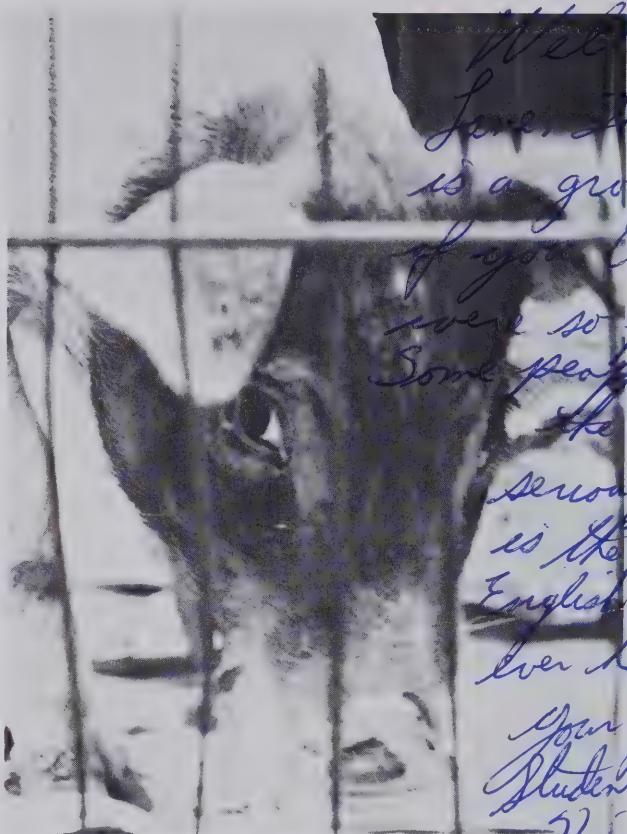 Wel
is a gro
of you
were so
Some peop
the
seriou
is the
English
ever h
your
Studen